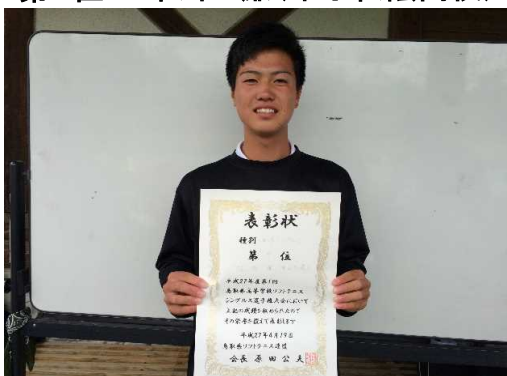 表彰状
種別
第 位
平成27年度第1回
鳥取県高等学校ソフトテニス
シングルス選手権大会において
上記の成績を収められたので
その栄誉を讃えて表彰します
平成27年4月19日
鳥取県ソフトテニス連盟
会長 原田公夫